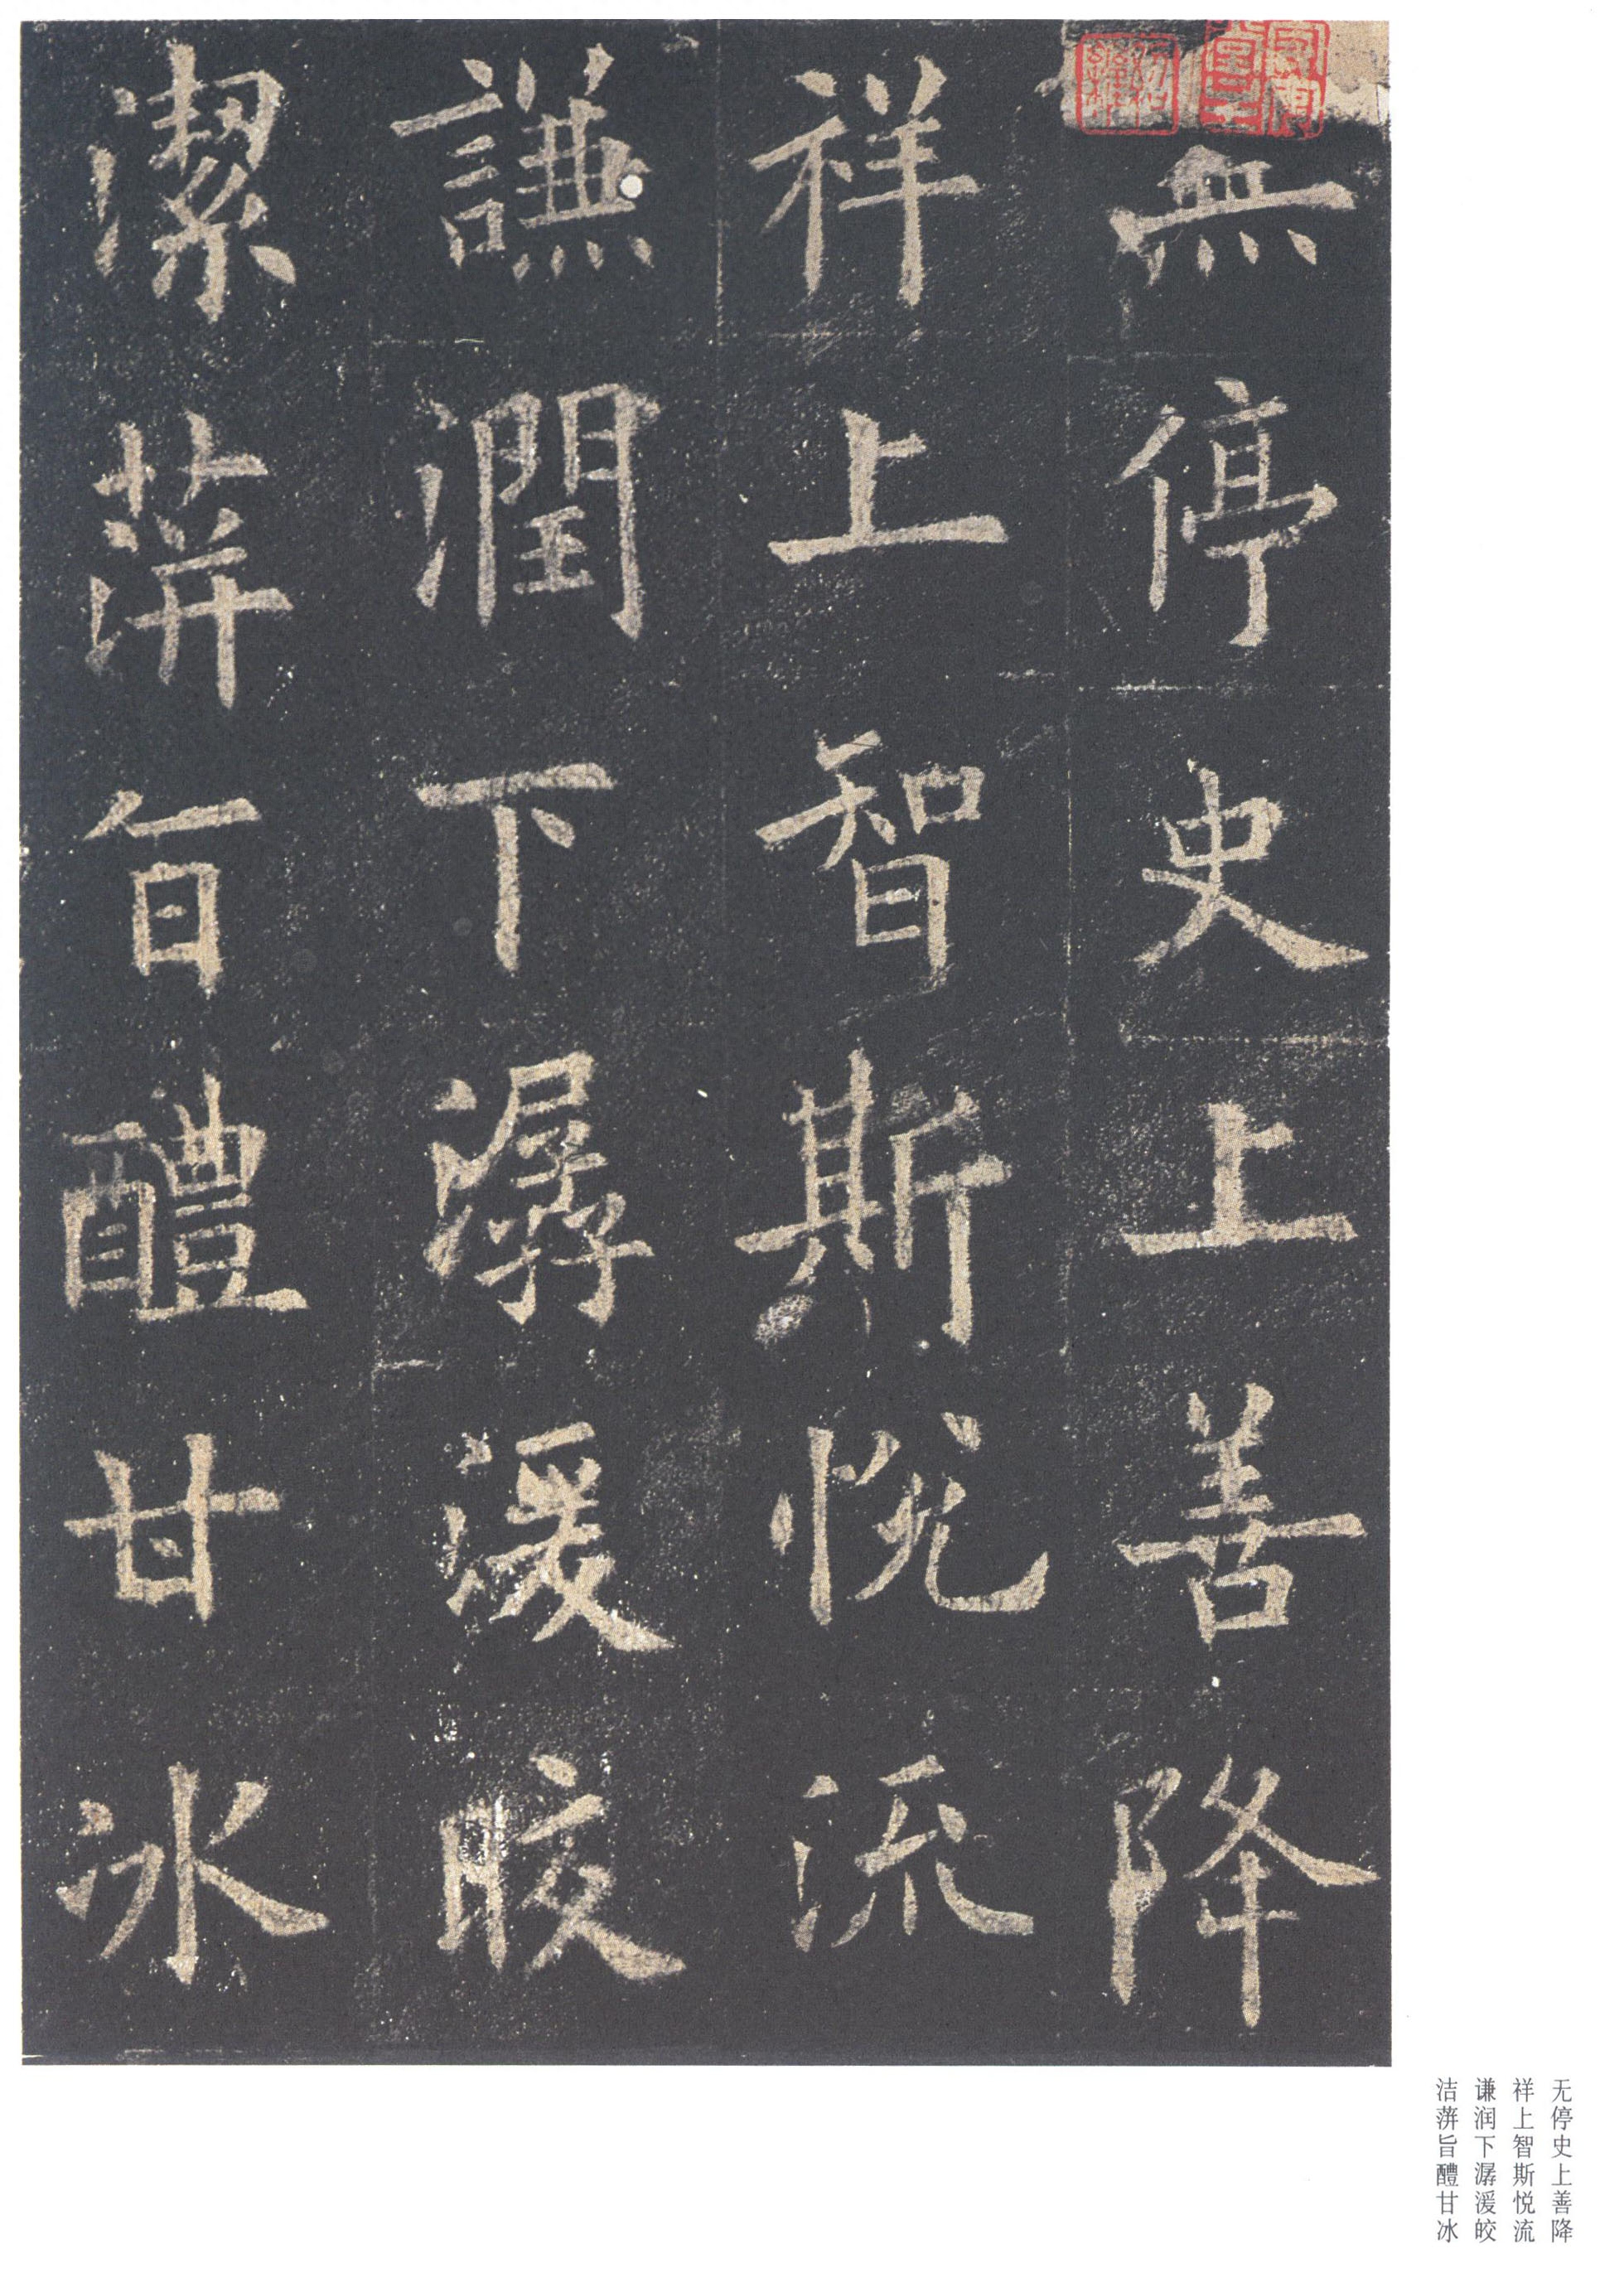 無停史上善降
祥上智斯悅流
謙潤下潺湲皎
潔蓱旨醴甘冰
无停史上善降
祥上智斯悦流
谦润下潺湲皎
洁蓱旨醴甘冰